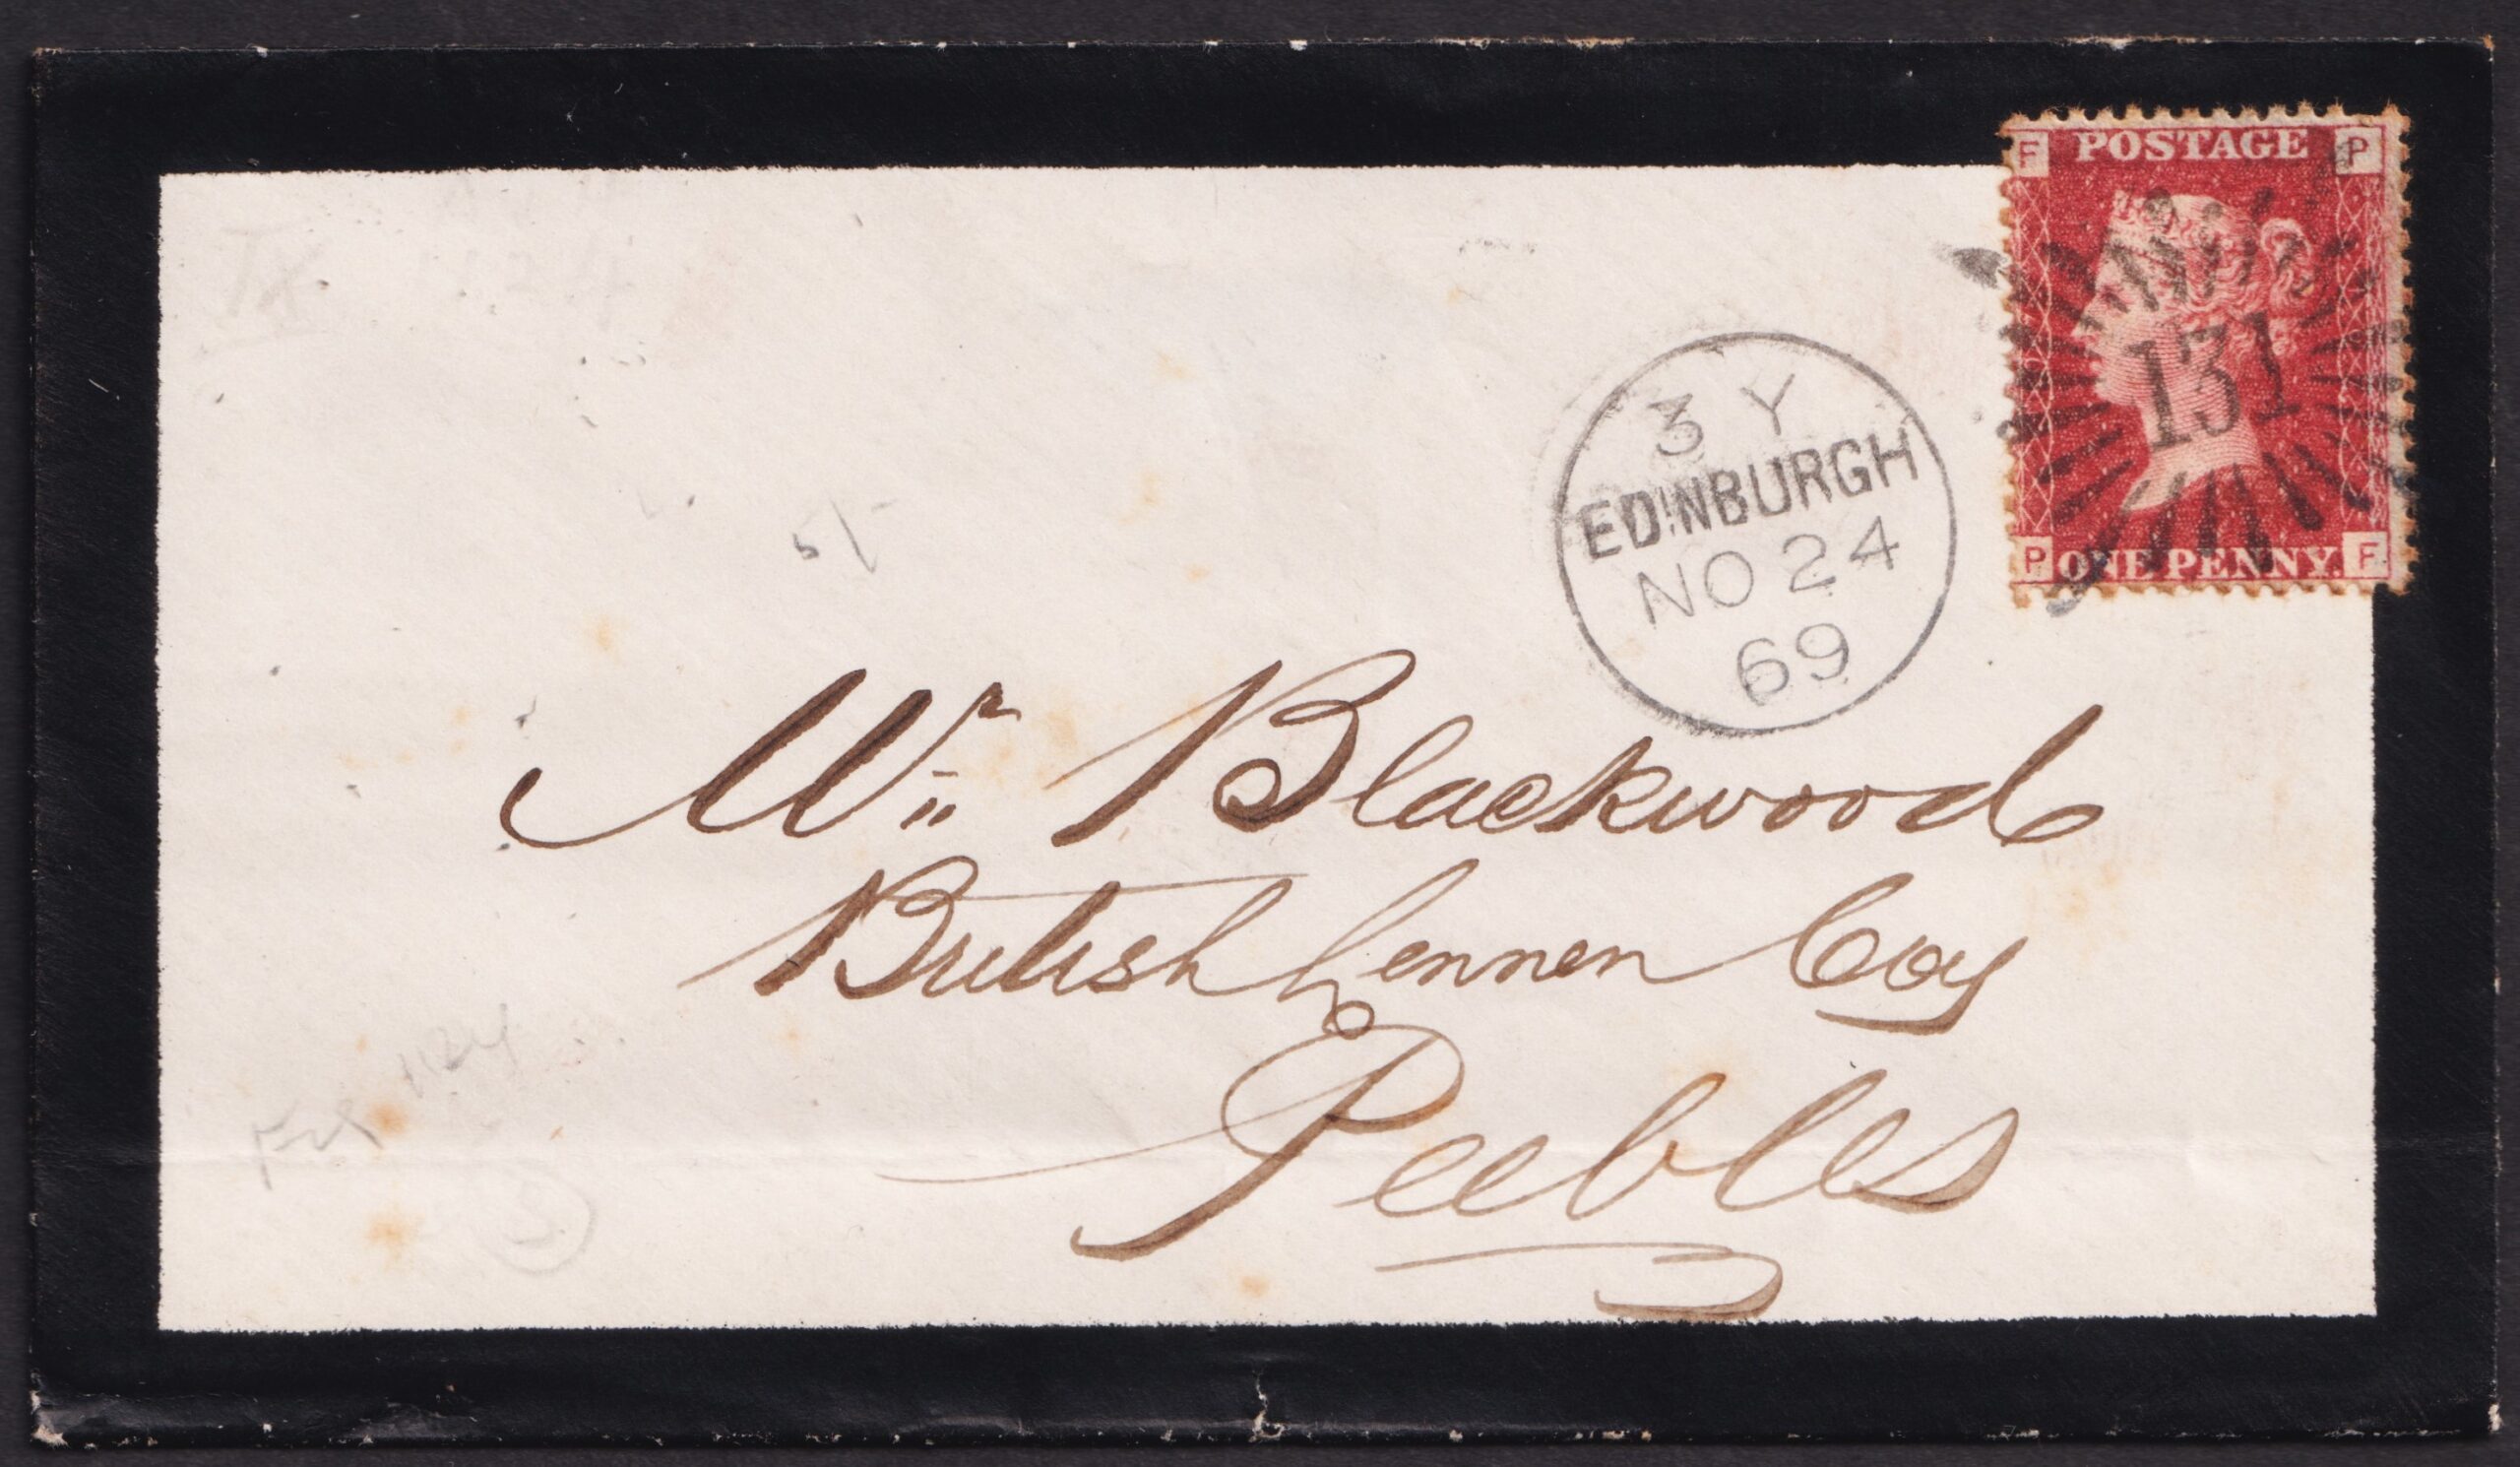 F POSTAGE P
131
P ONE PENNY. F
3 Y
EDINBURGH
NO 24
69
5/-
Mr Blackwood
British Linnen Coy
Peebles
1124